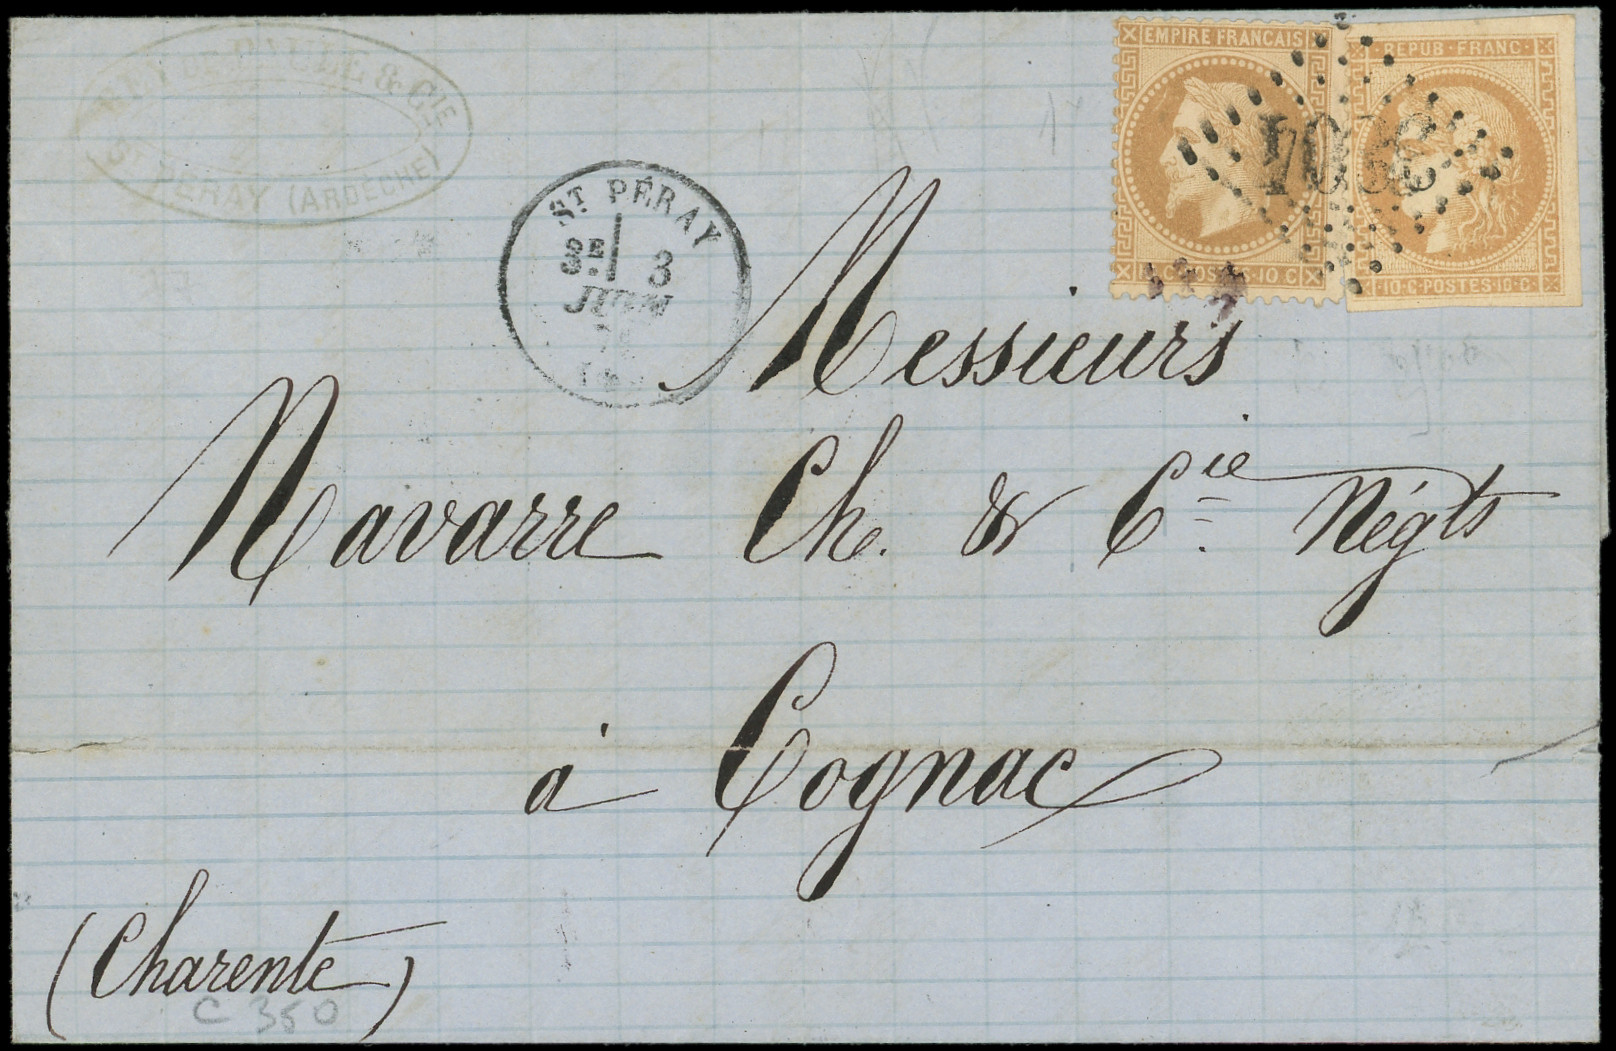 REY DE PAULE & CIE
ST PERAY (ARDÈCHE)
EMPIRE FRANCAIS
10 C·POSTES·10 C
REPUB·FRANC·
10·C·POSTES·10·C·
ST PÉRAY
3E 3
JUIN
Messieurs
Navarre Ch. & Cie. Négts
à Cognac
(Charente)
C 350